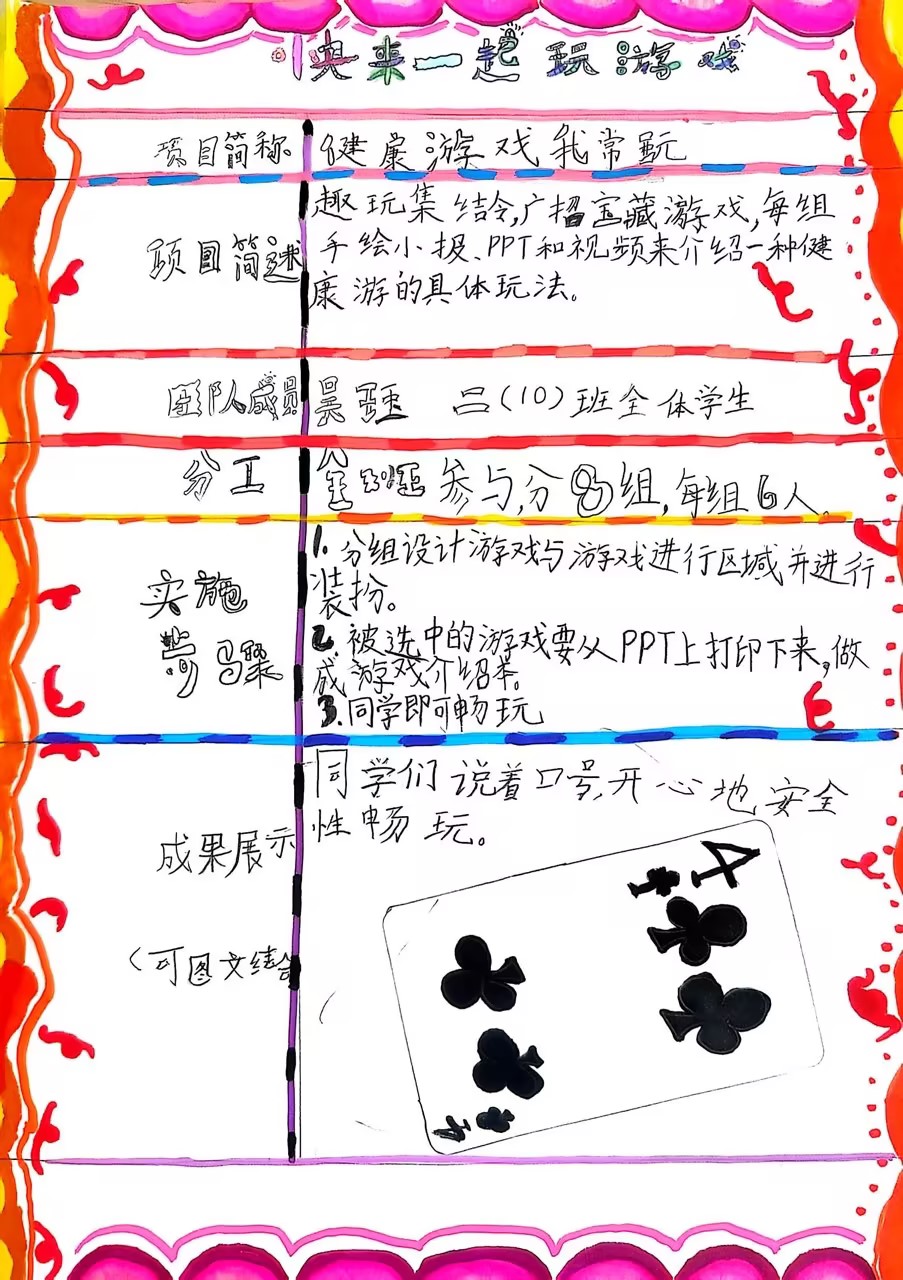 快来一起玩游戏
项目简称 健康游戏我常玩
趣玩集结令,广招宝藏游戏,每组
项目简述 手绘小报、PPT和视频来介绍一种健
康游的具体玩法。
团队成员 吴 吕(10)班全体学生
分工 全班 参与,分8组,每组6人。
1. 分组设计游戏与游戏进行区域并进行
实施 装扮。
2. 被选中的游戏要从PPT上打印下来,做
步骤 成游戏介绍本。
3. 同学即可畅玩
同学们说着口号,开心地安全
成果展示 性畅玩。
(可图文结合
4
4